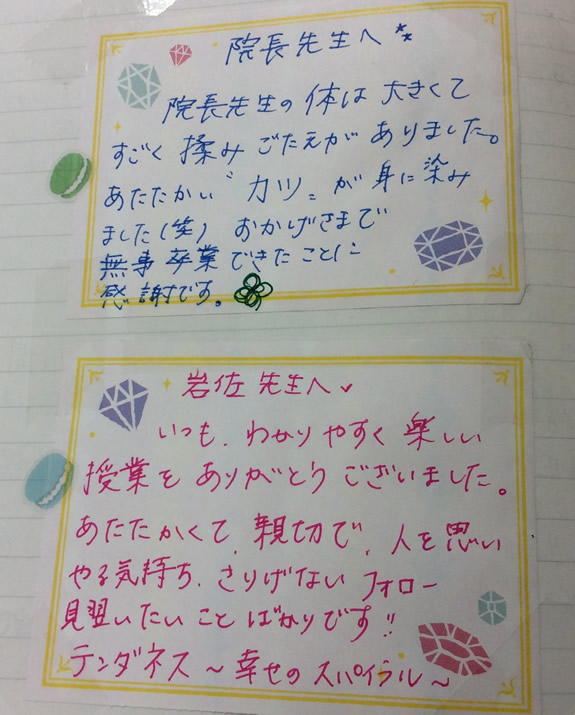 院長先生へ
院長先生の体は大きくて
すごく揉みごたえがありました。
あたたかい〝カツ〟が身に染み
ました(笑) おかげさまで
無事卒業できたことに
感謝です。
岩佐先生へ
いつも、わかりやすく楽しい
授業をありがとうございました。
あたたかくて、親切で、人を思い
やる気持ち、さりげないフォロー
見習いたいことばかりです!!
テンダネス〜幸せのスパイラル〜